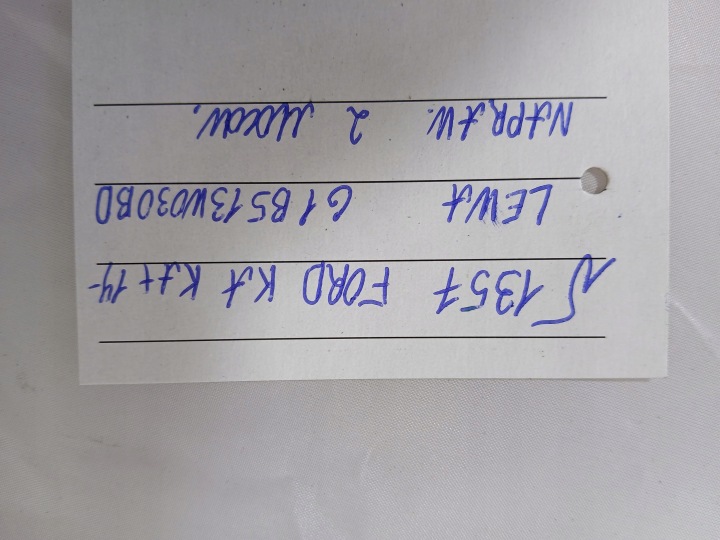 N 1357 FORD KA KA++ 14-
LEWA G1B513W030BD
NAPRAW. 2 mocow.